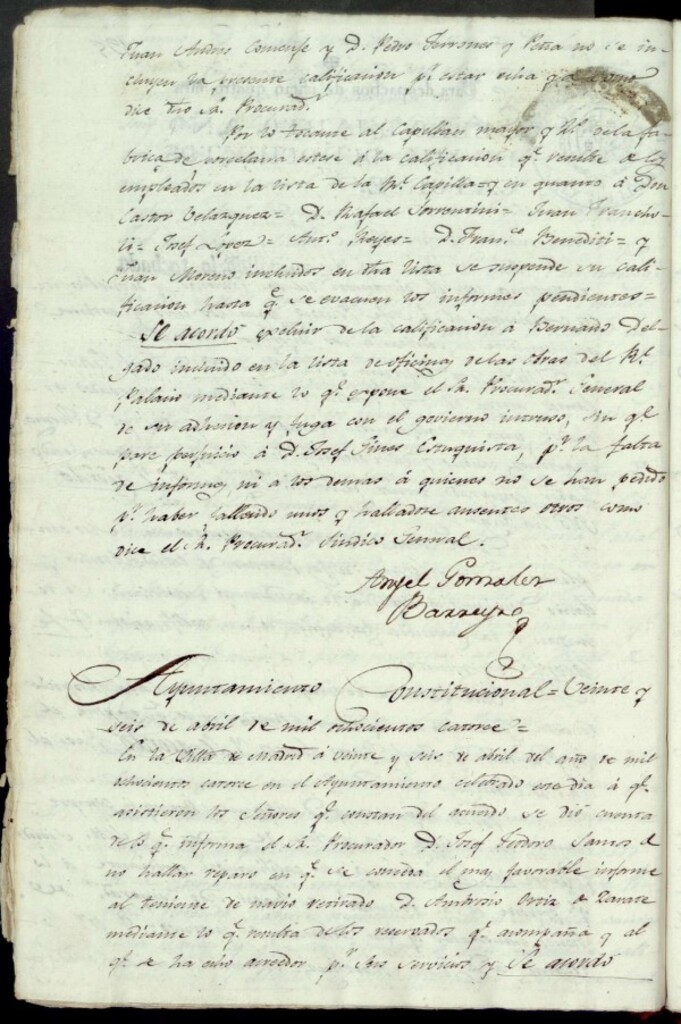 Juan Andres Comense y D. Pedro Terrones y Peña no se in-
cluyen la presente calificacion pr. estar echa ya como
dice dho Sr. Procurador.
Por lo tocante al Capellan mayor y Rl. de la fa-
brica de porcelana estese á la calificacion qe. resulte de los
empleados en la lista de la Rl. Capilla= y en quanto á Don
Castor Velazquez= D. Rafael Sorrentini= Juan
Josef Lopez= Anto. Reyes= D. Franco. Benediti= y
Juan Moreno incluidos en dha lista se suspende su cali-
ficacion hasta qe. se evacuen los informes pendientes=
Se acordó excluir de la calificacion á Bernardo Del-
gado incluido en la lista de oficinas de las obras del Rl.
Palacio mediante lo qe. expone el Sr. Procurador General
de su adhesion y fuga con el govierno intruso, sin qe.
pare perjuicio á D. Josef Gines pr. la falta
de informes, ni á los demas á quienes no se han pedido
pr. haber fallecido unos y halladose ausentes otros como
dice el Sr. Procurador Sindico General.
Angel Gonzalez
Barreyro
Ayuntamiento Constitucional= Veinte y
seis de abril de mil ochocientos catorce=
En la Villa de Madrid á veinte y seis de abril del año de mil
ochocientos catorce en el Ayuntamiento celebrado este dia á qe.
asistieron los Señores qe. constan del acuerdo se dió cuenta
de lo qe. informa el Sr. Procurador D. Josef Teodoro Santos de
no hallar reparo en qe. se conceda el mas favorable informe
al teniente de navio retirado D. Ambrosio Ortiz de Zarate
mediante lo qe. resulta de los reservados qe. acompaña y al
qe. se ha echo acreedor pr. sus servicios y Se acordó